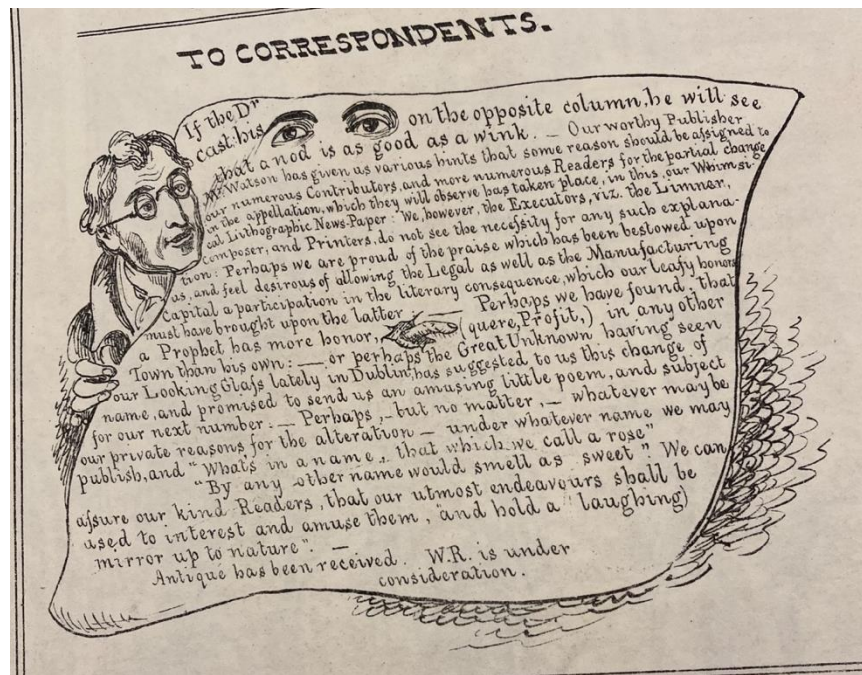 TO CORRESPONDENTS.
If the Dr
cast his on the opposite column, he will see
that a nod is as good as a wink. — Our worthy Publisher
Mr Watson has given us various hints that some reason should be aſsigned to
our numerous Contributors, and more numerous Readers for the partial change
in the appellation, which they will observe has taken place, in this, our Whimsi-
cal Lithographic News-Paper: We, however, the Executors, viz. the Limner,
Composer, and Printers, do not see the neceſsity for any such explana-
tion: Perhaps we are proud of the praise which has been bestowed upon
us, and feel desirous of allowing the Legal as well as the Manufacturing
Capital a participation in the literary consequence, which our leafy honors
must have brought upon the latter — Perhaps we have found, that
a Prophet has more honor, (quere, Profit,) in any other
Town than his own: — or perhaps the Great Unknown having seen
our Looking Glaſs lately in Dublin, has suggested to us this change of
name, and promised to send us an amusing little poem, and subject
for our next number. — Perhaps, — but no matter, — whatever may be
our private reasons for the alteration — under whatever name we may
publish, and "What's in a name, — that which we call a rose"
"By any other name would smell as sweet". We can
aſsure our kind Readers, that our utmost endeavours shall be
used to interest and amuse them, "and hold a (laughing)
mirror up to nature". —
Antique has been received. W.R. is under
consideration.